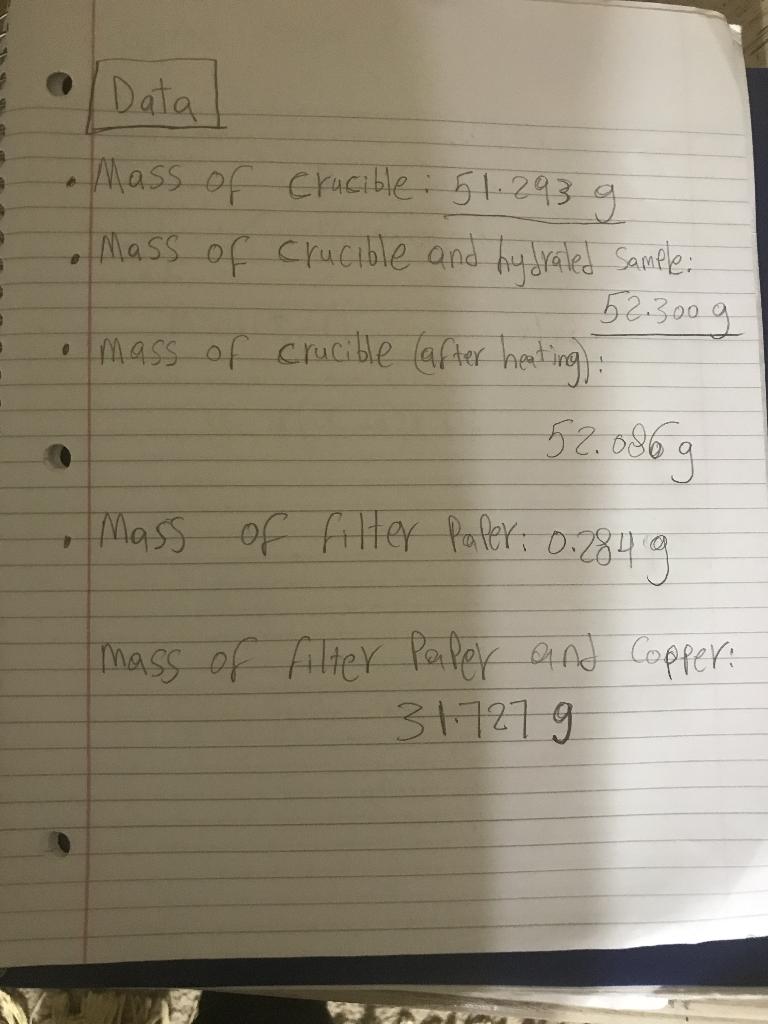 Data
• Mass of crucible: 51.293 g
• Mass of crucible and hydrated sample:
52.300 g
• Mass of crucible (after heating):
52.086 g
• Mass of filter Paper: 0.284 g
Mass of filter Paper and Copper:
31.727 g